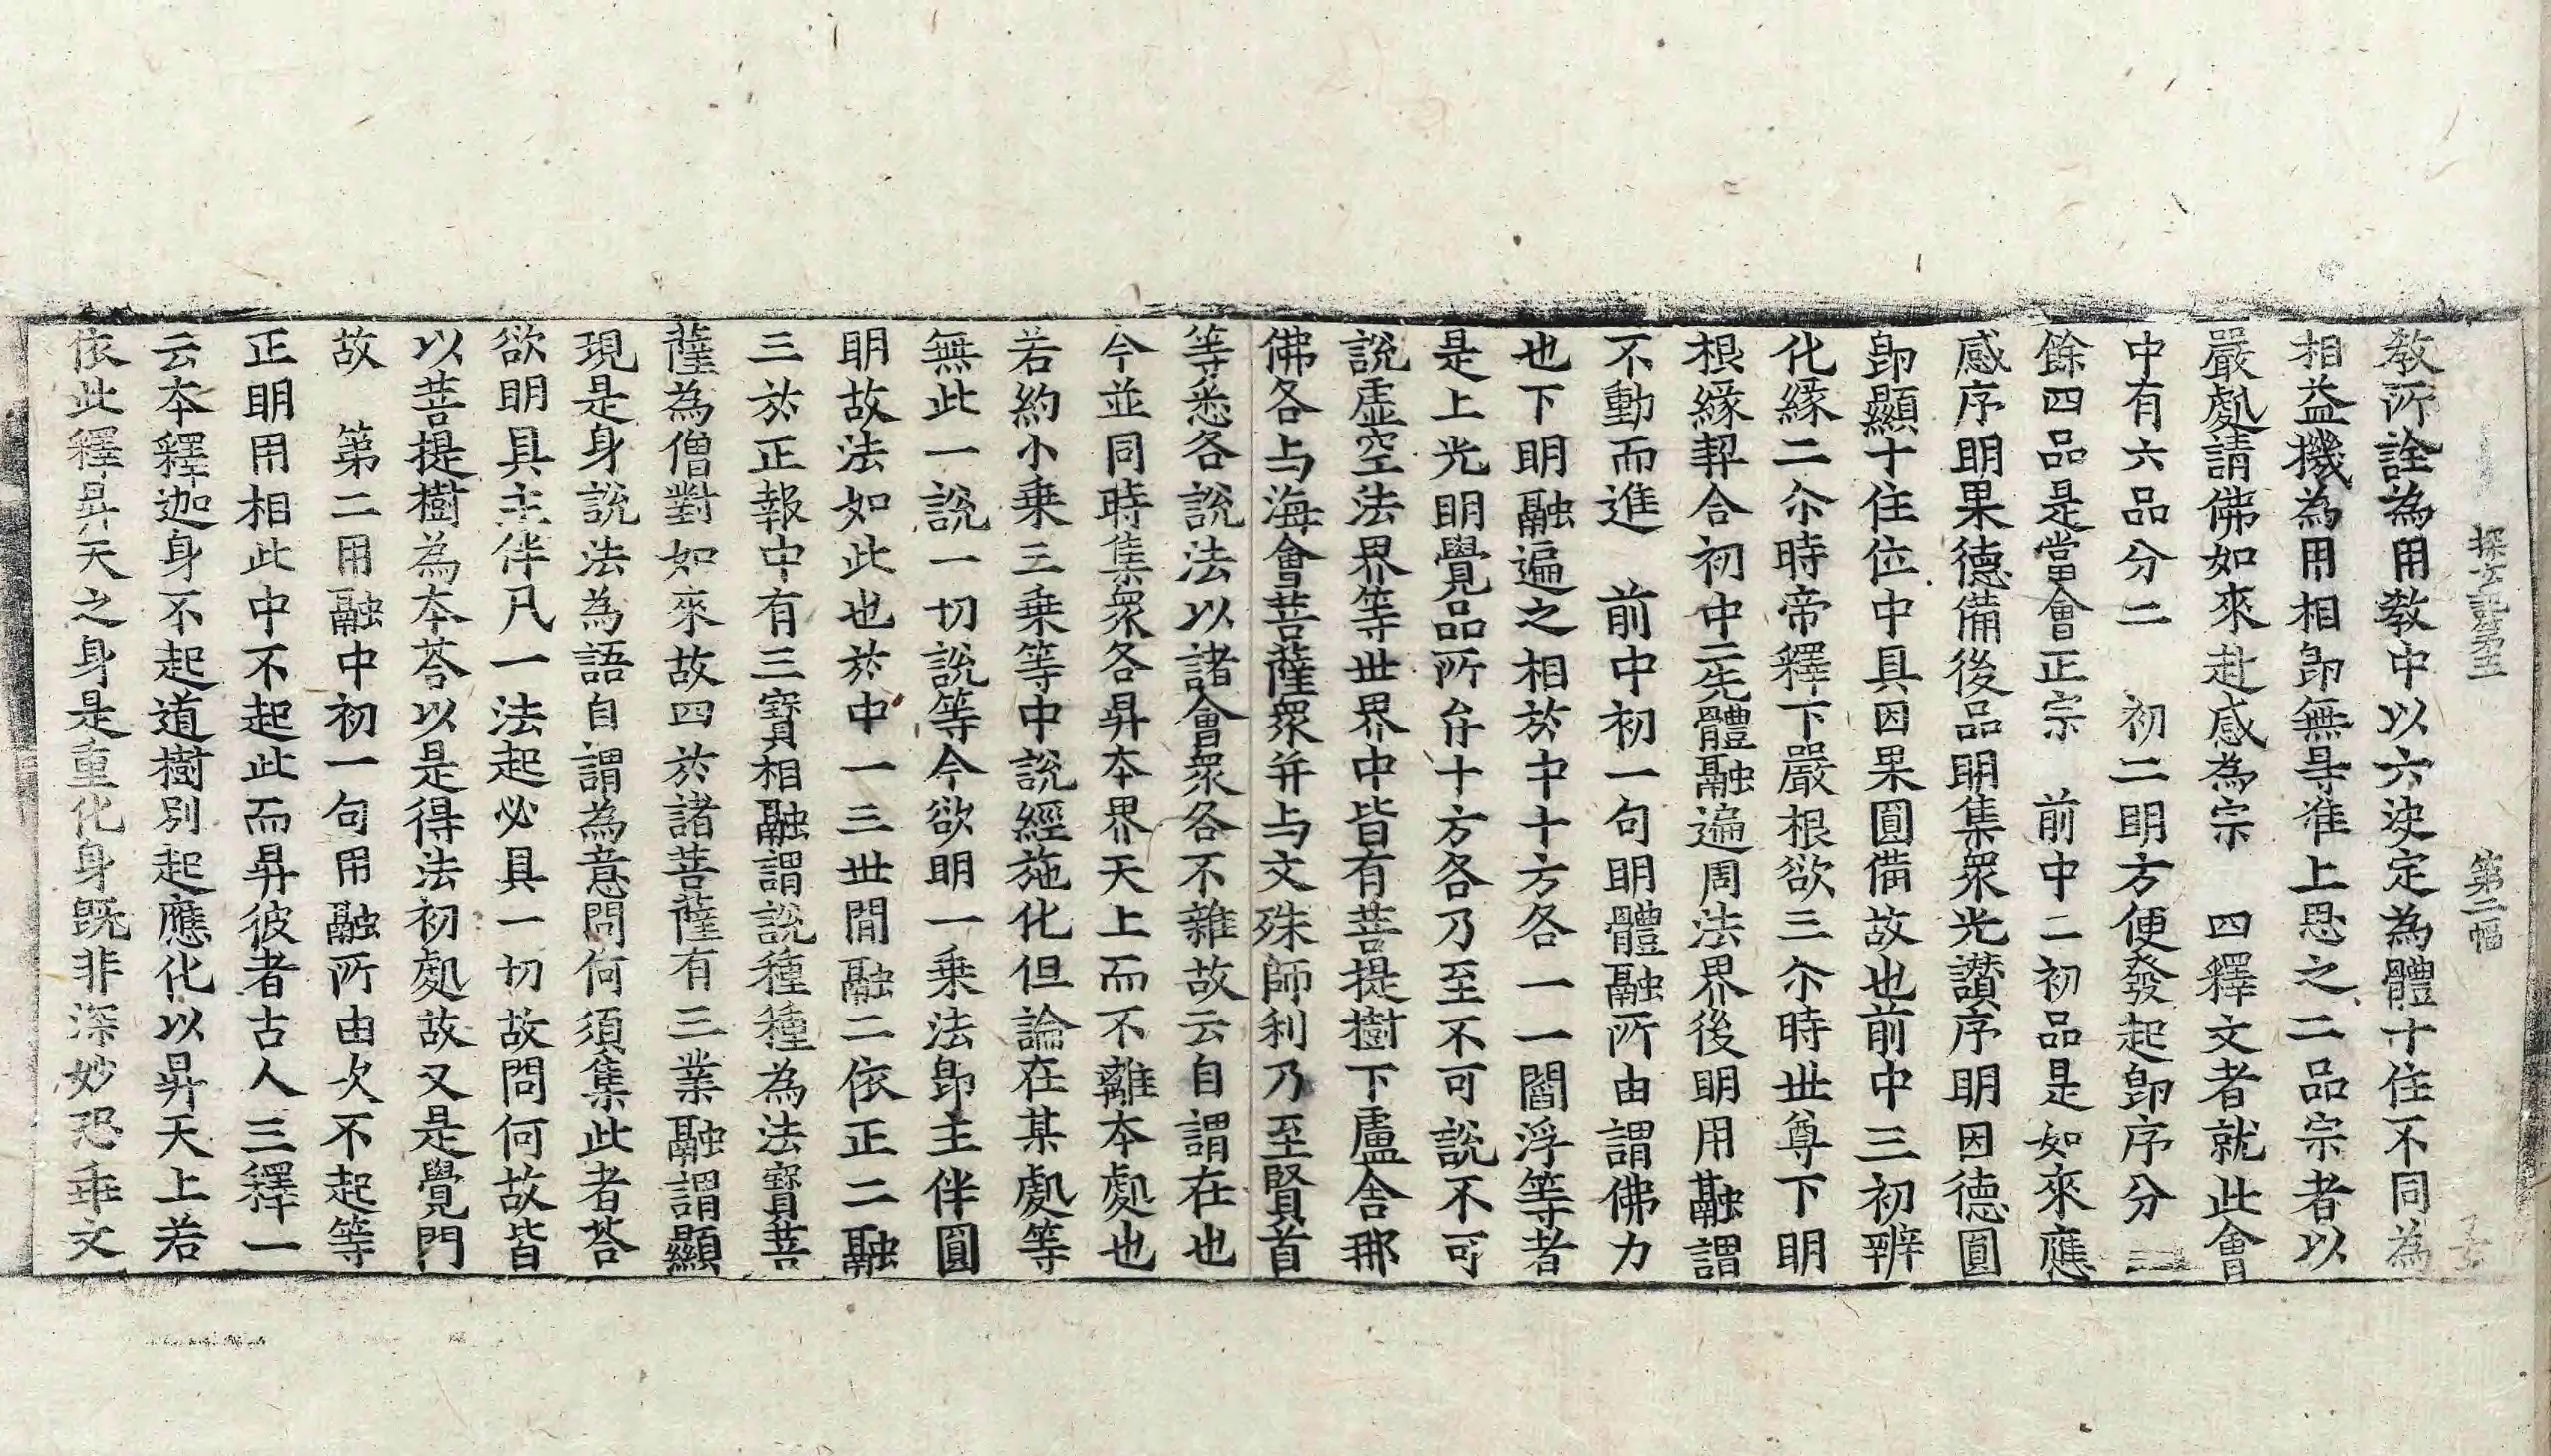 教所詮為用教中以六決定為體十住不同為
相益機為用相即無㝵准上思之二品宗者以
嚴處請佛如來赴感為宗　四釋文者就此會
中有六品分二　初二明方便發起即序分　二
餘四品是當會正宗　前中二初品是如來應
感序明果德備後品明集眾光讃序明因德圓
即顯十住位中具因果圓備故也前中三初辨
化緣二尒時帝釋下嚴根欲三尒時世尊下明
根緣契合初中二先體融遍周法界後明用融謂
不動而進　前中初一句明體融所由謂佛力
也下明融遍之相於中十方各一一閻浮等者
是上光明覺品所弁十方各乃至不可說不可
說虛空法界等世界中皆有菩提樹下盧舍那
佛各与海會菩薩眾并与文殊師利乃至賢首
等悉各說法以諸會眾各不雜故云自謂在也
今並同時集眾各昇本界天上而不離本處也
若約小乗三乗等中說經施化但論在某處等
無此一說一切說等今欲明一乗法即主伴圓
明故法如此也於中一三世間融二依正二融
三於正報中有三寶相融謂說種種為法寶菩
薩為僧對如來故四於諸菩薩有三業融謂顯
現是身說法為語自謂為意問何須集此者荅
欲明具主伴凡一法起必具一切故問何故皆
以菩提樹為本荅以是得法初處故又是覺門
故　第二用融中初一句用融所由次不起等
正明用相此中不起此而昇彼者古人三釋一
云本釋迦身不起道樹別起應化以昇天上若
依此釋昇天之身是重化身既非深妙恐乖文
探玄記第五　第二幅